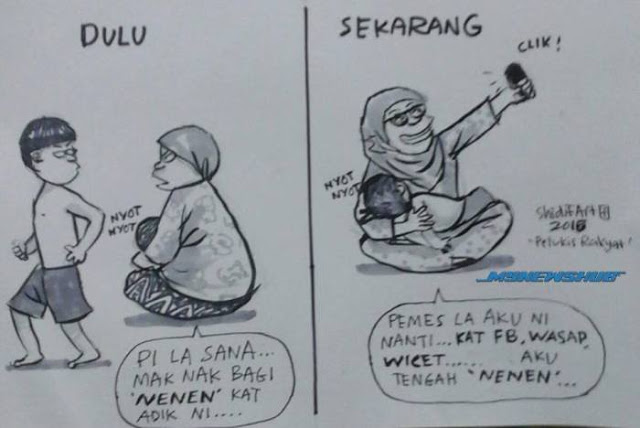 DULU
NYOT
NYOT
PI LA SANA...
MAK NAK BAGI
'NENEN' KAT
ADIK NI....
SEKARANG
CLIK!
NYOT
NYOT
Shidi7Art
2016
-Pelukis Rakyat!
MYNEWSHUB
PEMES LA AKU NI
NANTI... KAT FB, WASAP,
WICET...... AKU
TENGAH 'NENEN'...